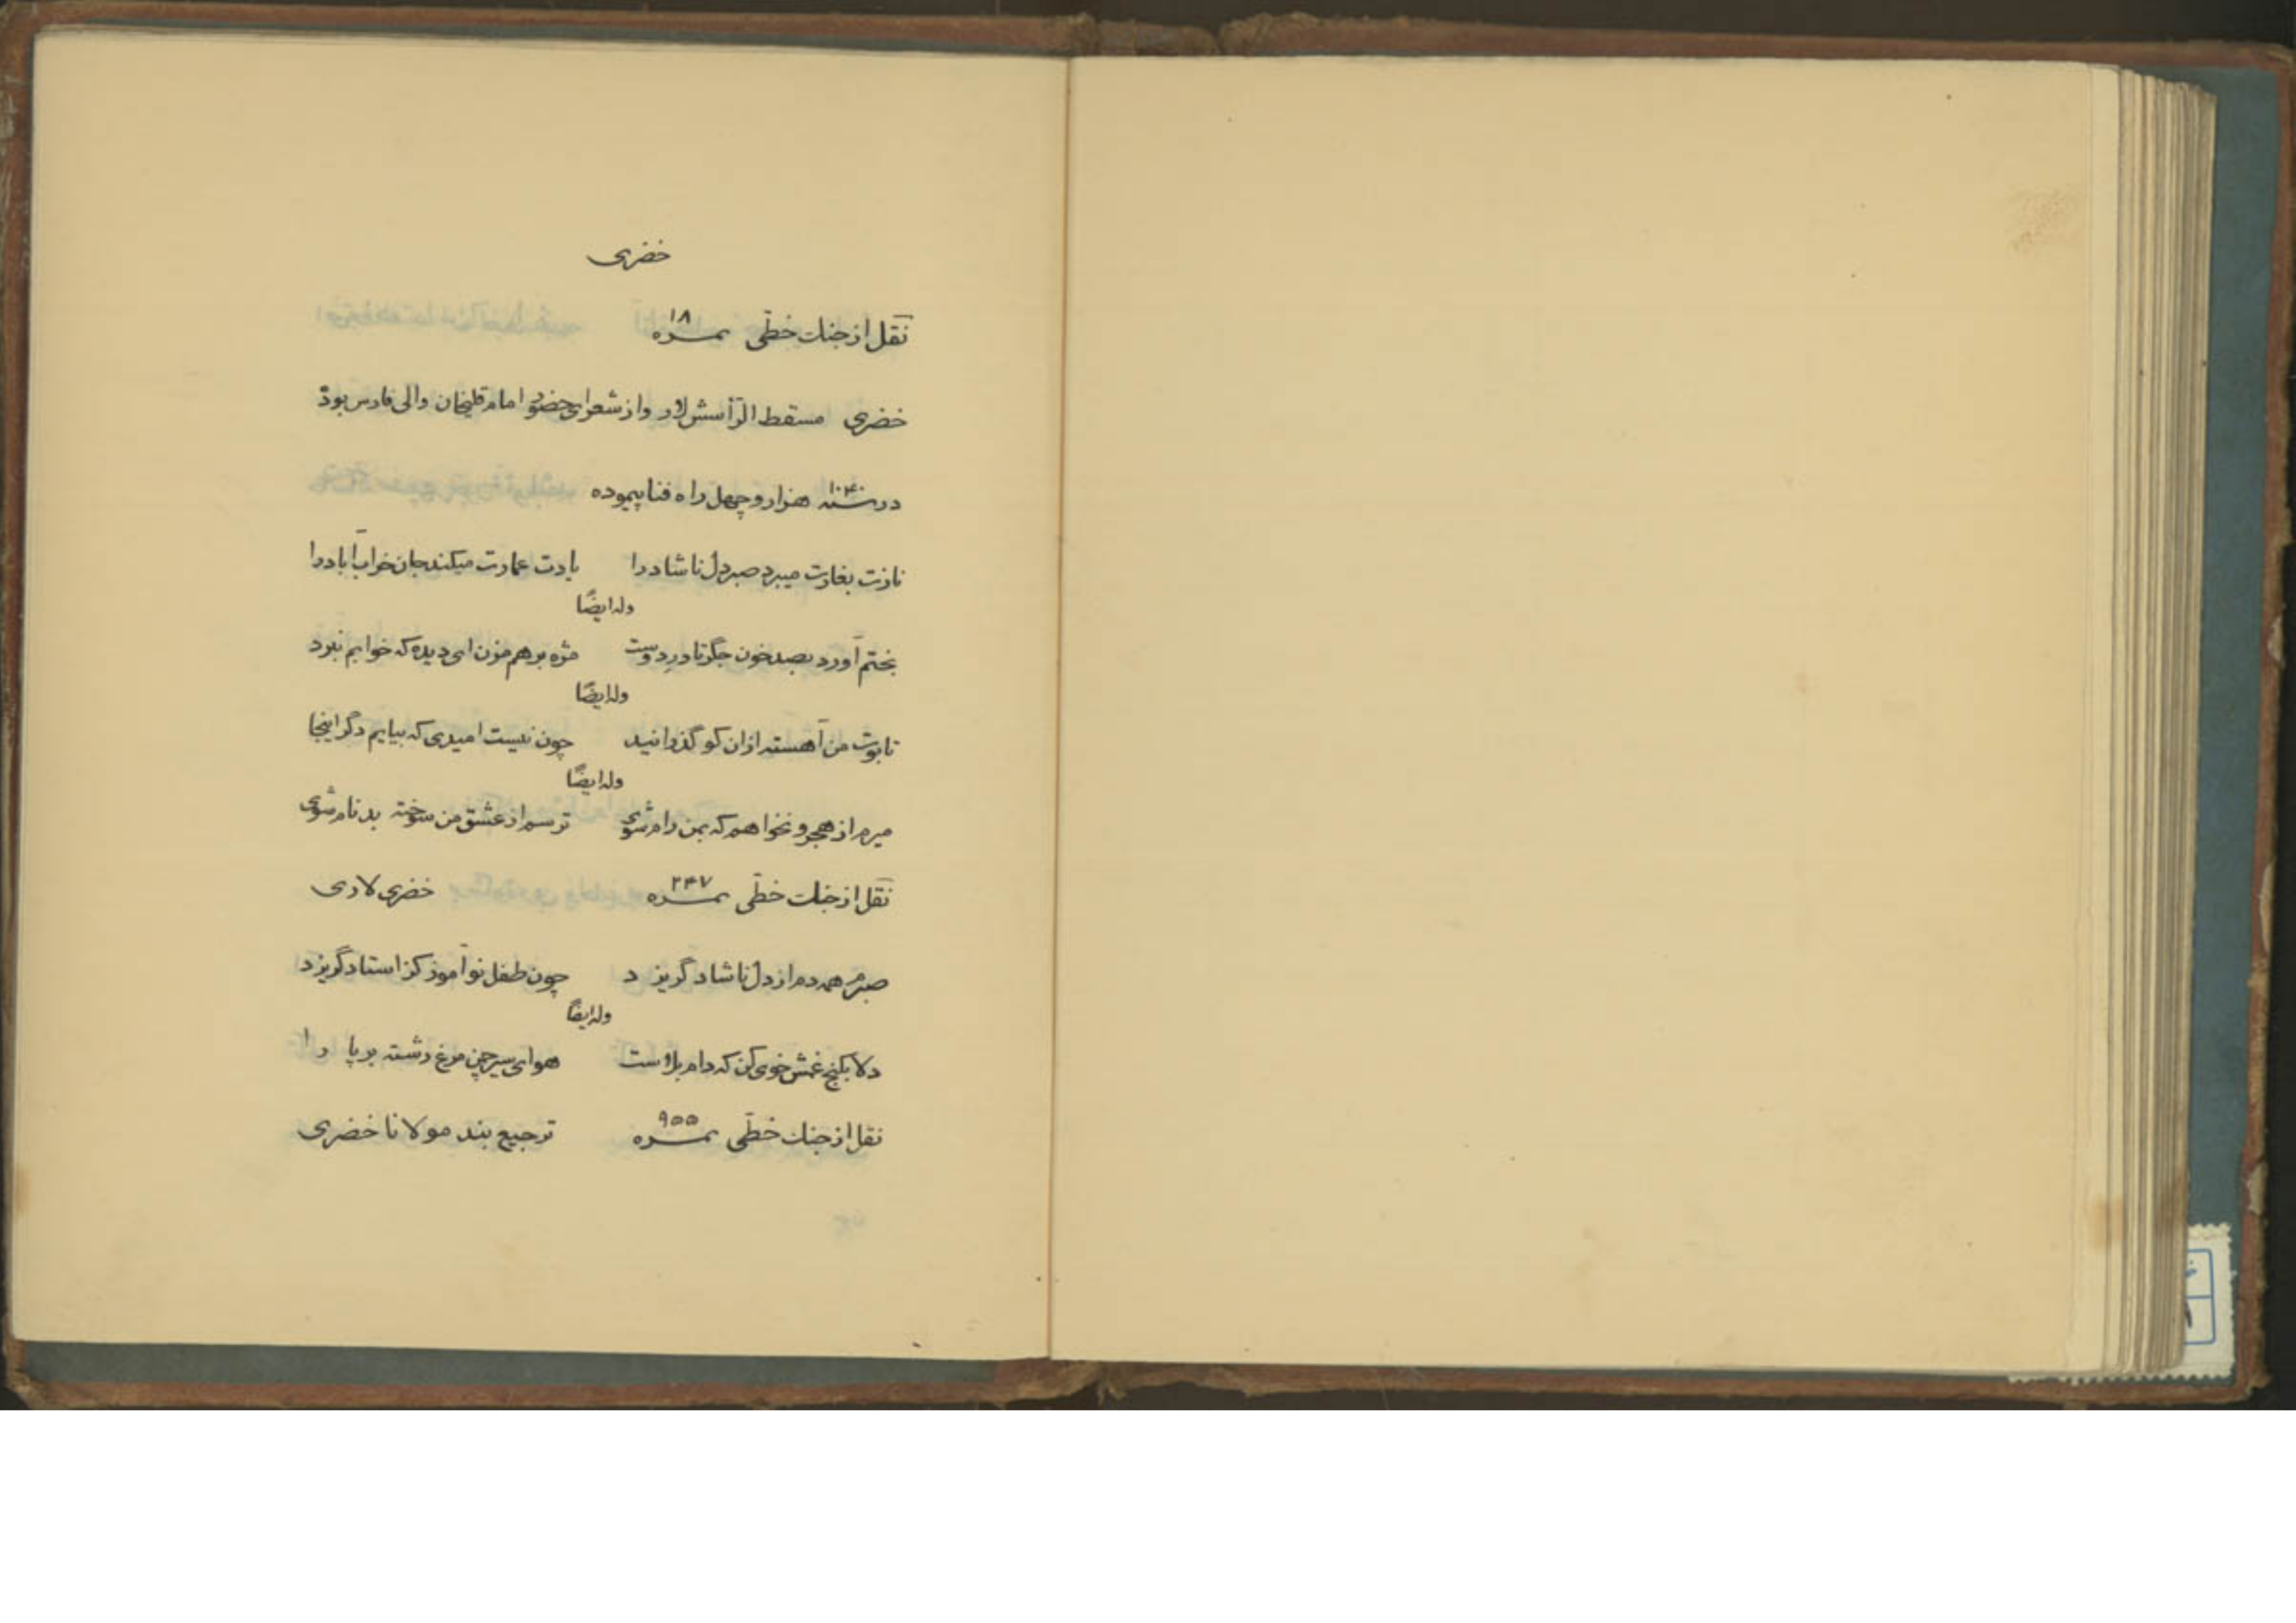 خضری
نقل از جنات خطّی نمره ۱۸
خضری مسقط الرّأسش لار و از شعرای حضور امام قلیخان والی فارس بودّ
در سنه ۱۰۴۰ هزار و چهل راه فنا پیموده
نازت بغارت میبرد صبر دل ناشاد را یادت عمارت میکند جان خراب آباد را
وله ایضًا
بختم آورد بصد خون جگر تا در دوست مژه بر هم مزن ای دیده که خوابم نبرد
وله ایضًا
تابوت من آهسته از ان کو گذرانید چون نیست امیدی که بیایم دگر اینجا
وله ایضًا
میرم از هجر و نخواهم که بمن رام شوی ترسم از عشق من سوخته بدنام شوی
نقل از جنات خطّی نمره ۲۴۷ خضری لاری
صبرم همه دم از دل ناشاد گریزد چون طفل نو آموز کز استاد گریزد
وله ایضًا
دلا بکنج غمش خوی کن که دام بلاست هوای سیر چمن مرغ رشته بر پا را
نقل از جنات خطّی نمره ۹۵۵ ترجیع بند مولانا خضری